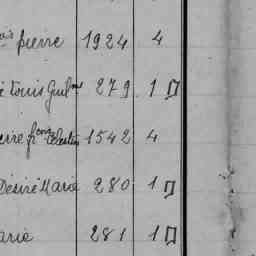 pierre 1924 4
Louis Guil.me 279. 1
pierre f.çois Célestin 1542 4
Désiré Marie 280 1
Marie 281 1